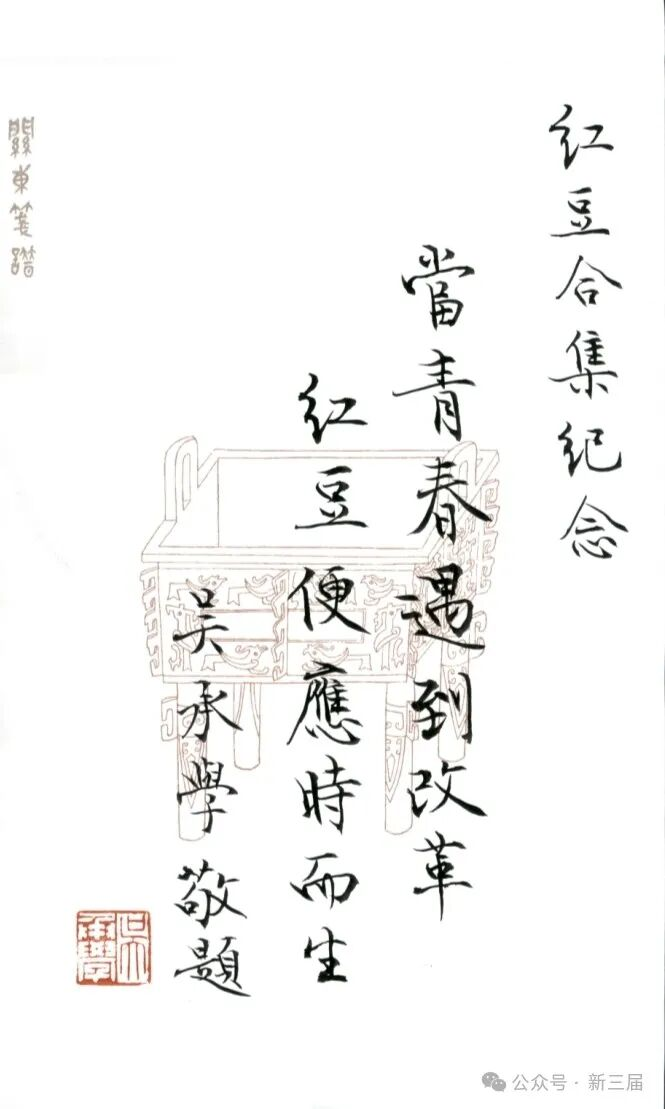 红豆合集纪念
當青春遇到改革
红豆便應時而生
吴承學敬題
吴承學
公众号·新三届